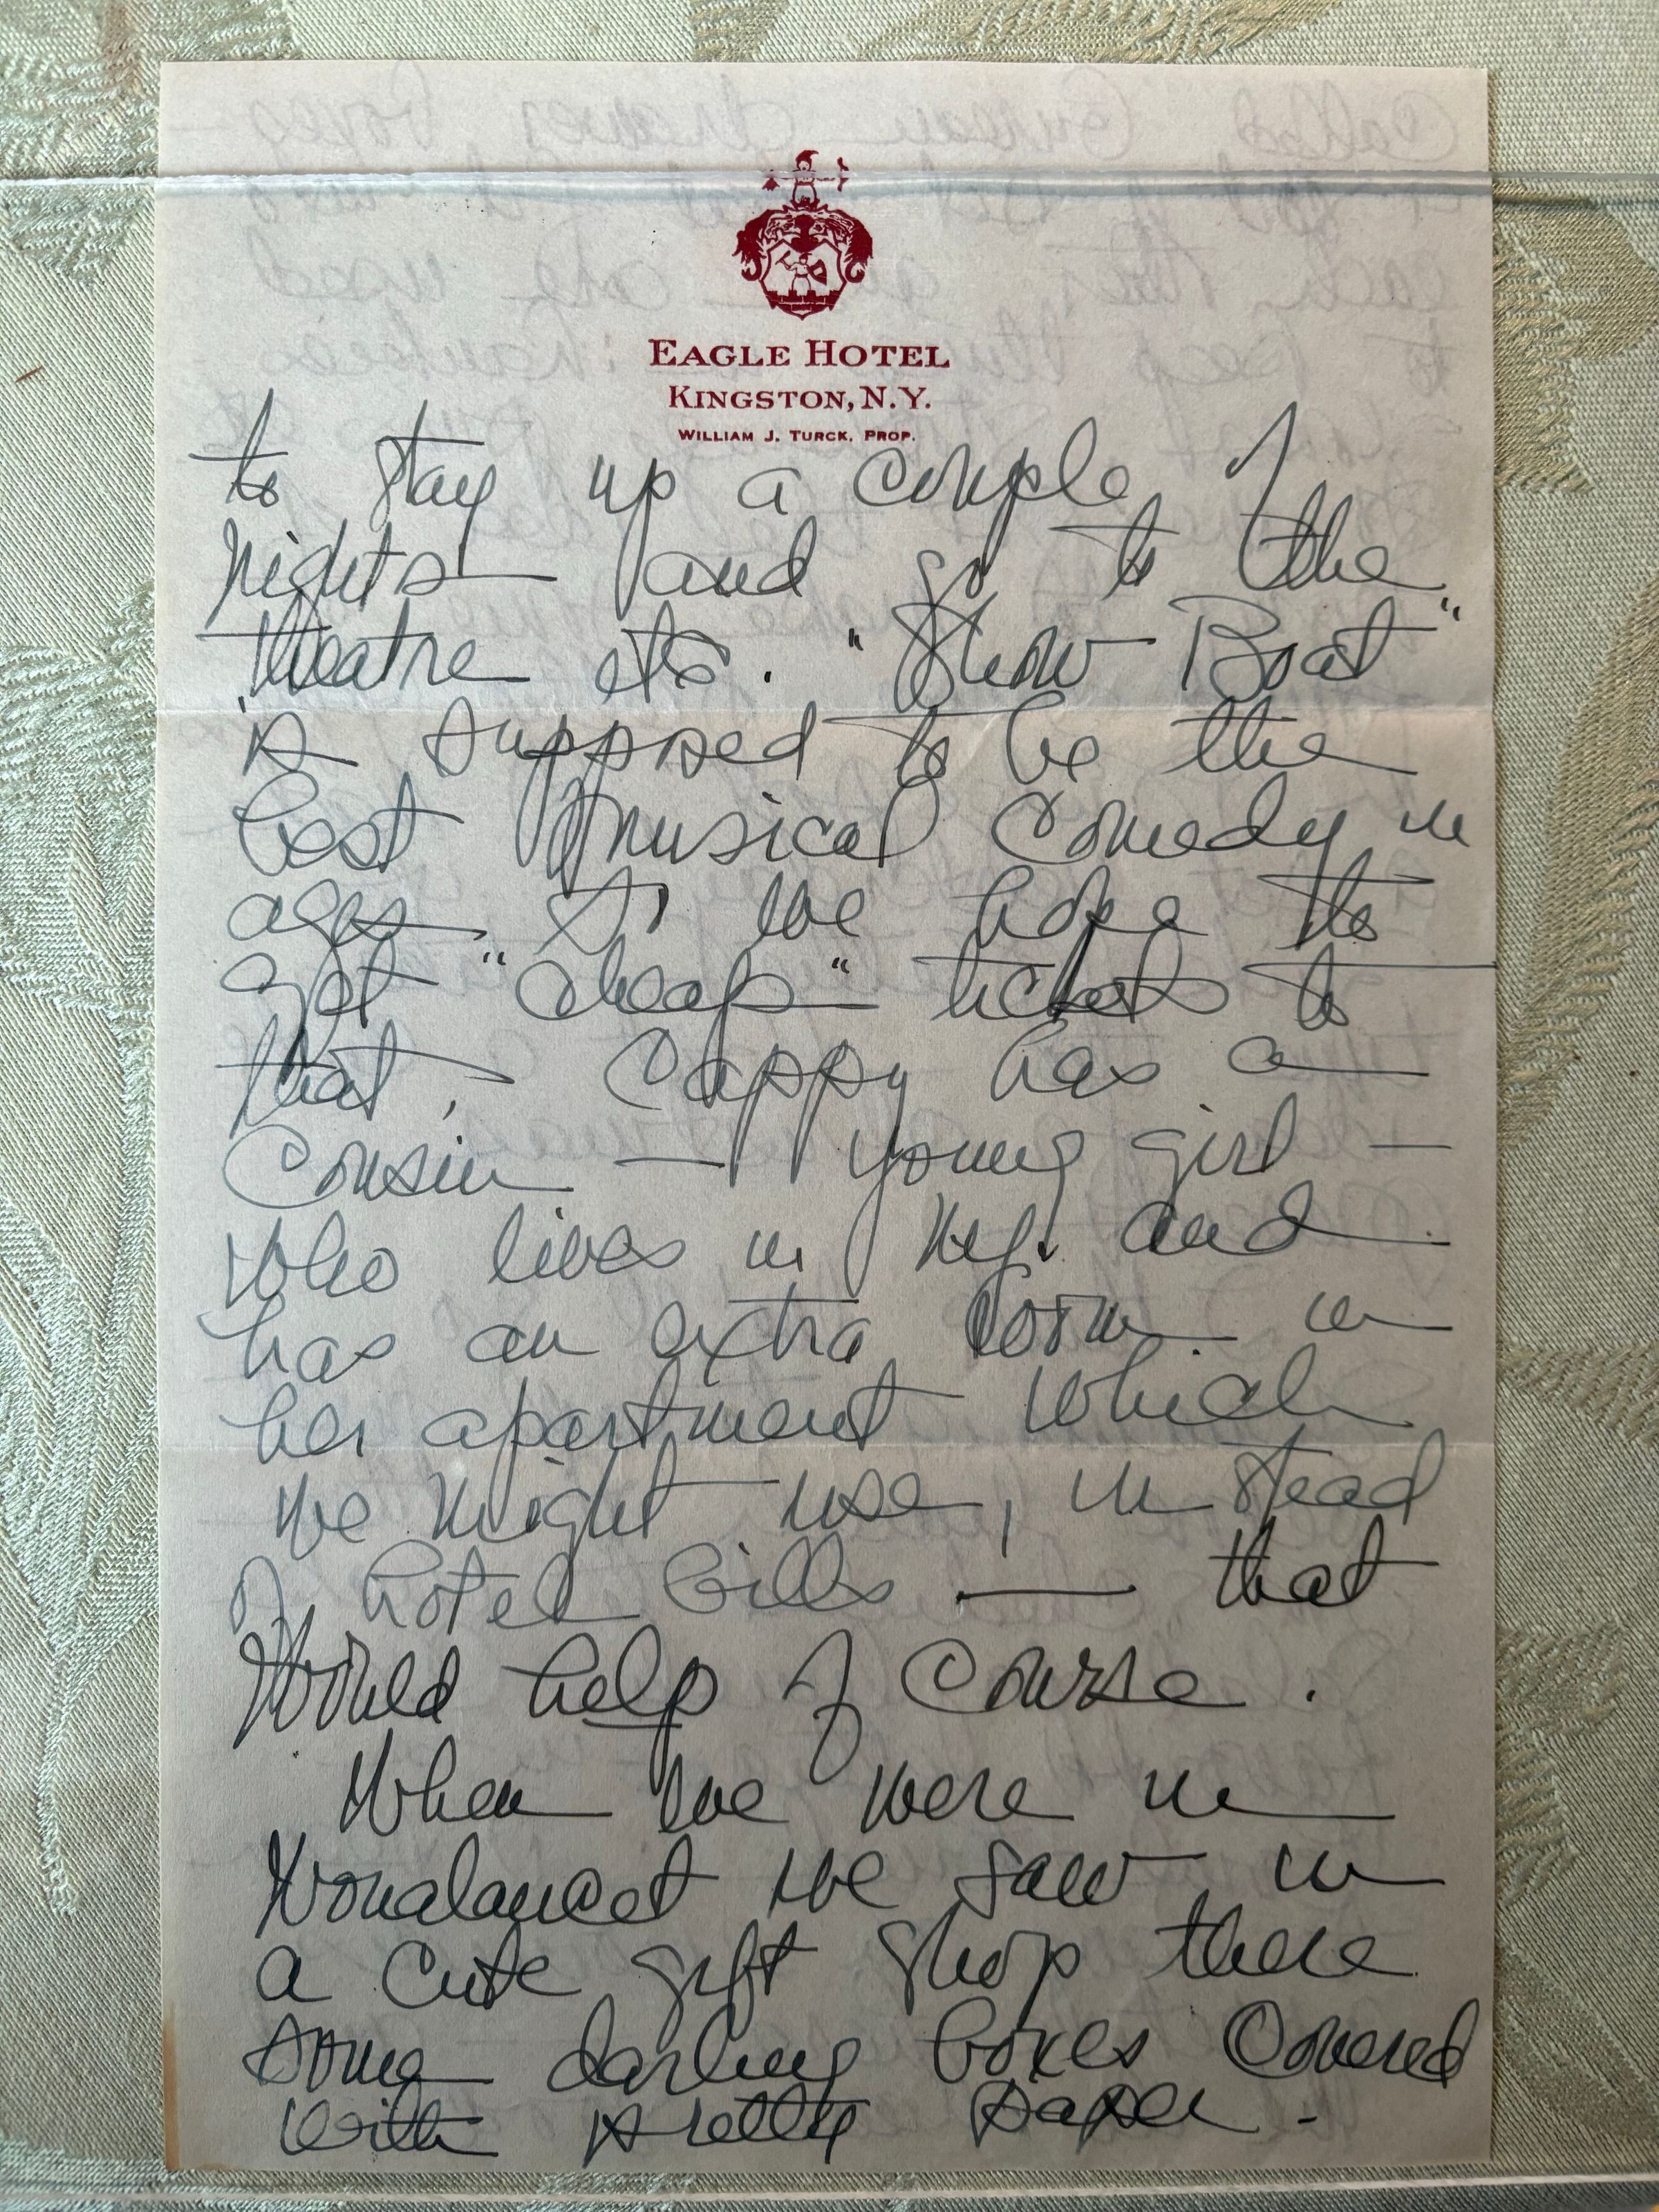 EAGLE HOTEL
KINGSTON, N.Y.
WILLIAM J. TURCK, PROP.
to stay up a couple of
nights — and go to the
theatre etc. "Show Boat"
is supposed to be the
best musical comedy in
ages. So we hope to
get "cheap" tickets to
that, — Cappy has a
cousin — young girl —
who lives in N.Y. and
has an extra room in
her apartment which
we might use, instead
of hotel bills — that
would help of course.
When we were in
Wonalancet we saw in
a cute gift shop there
some darling boxes covered
with pretty paper. -